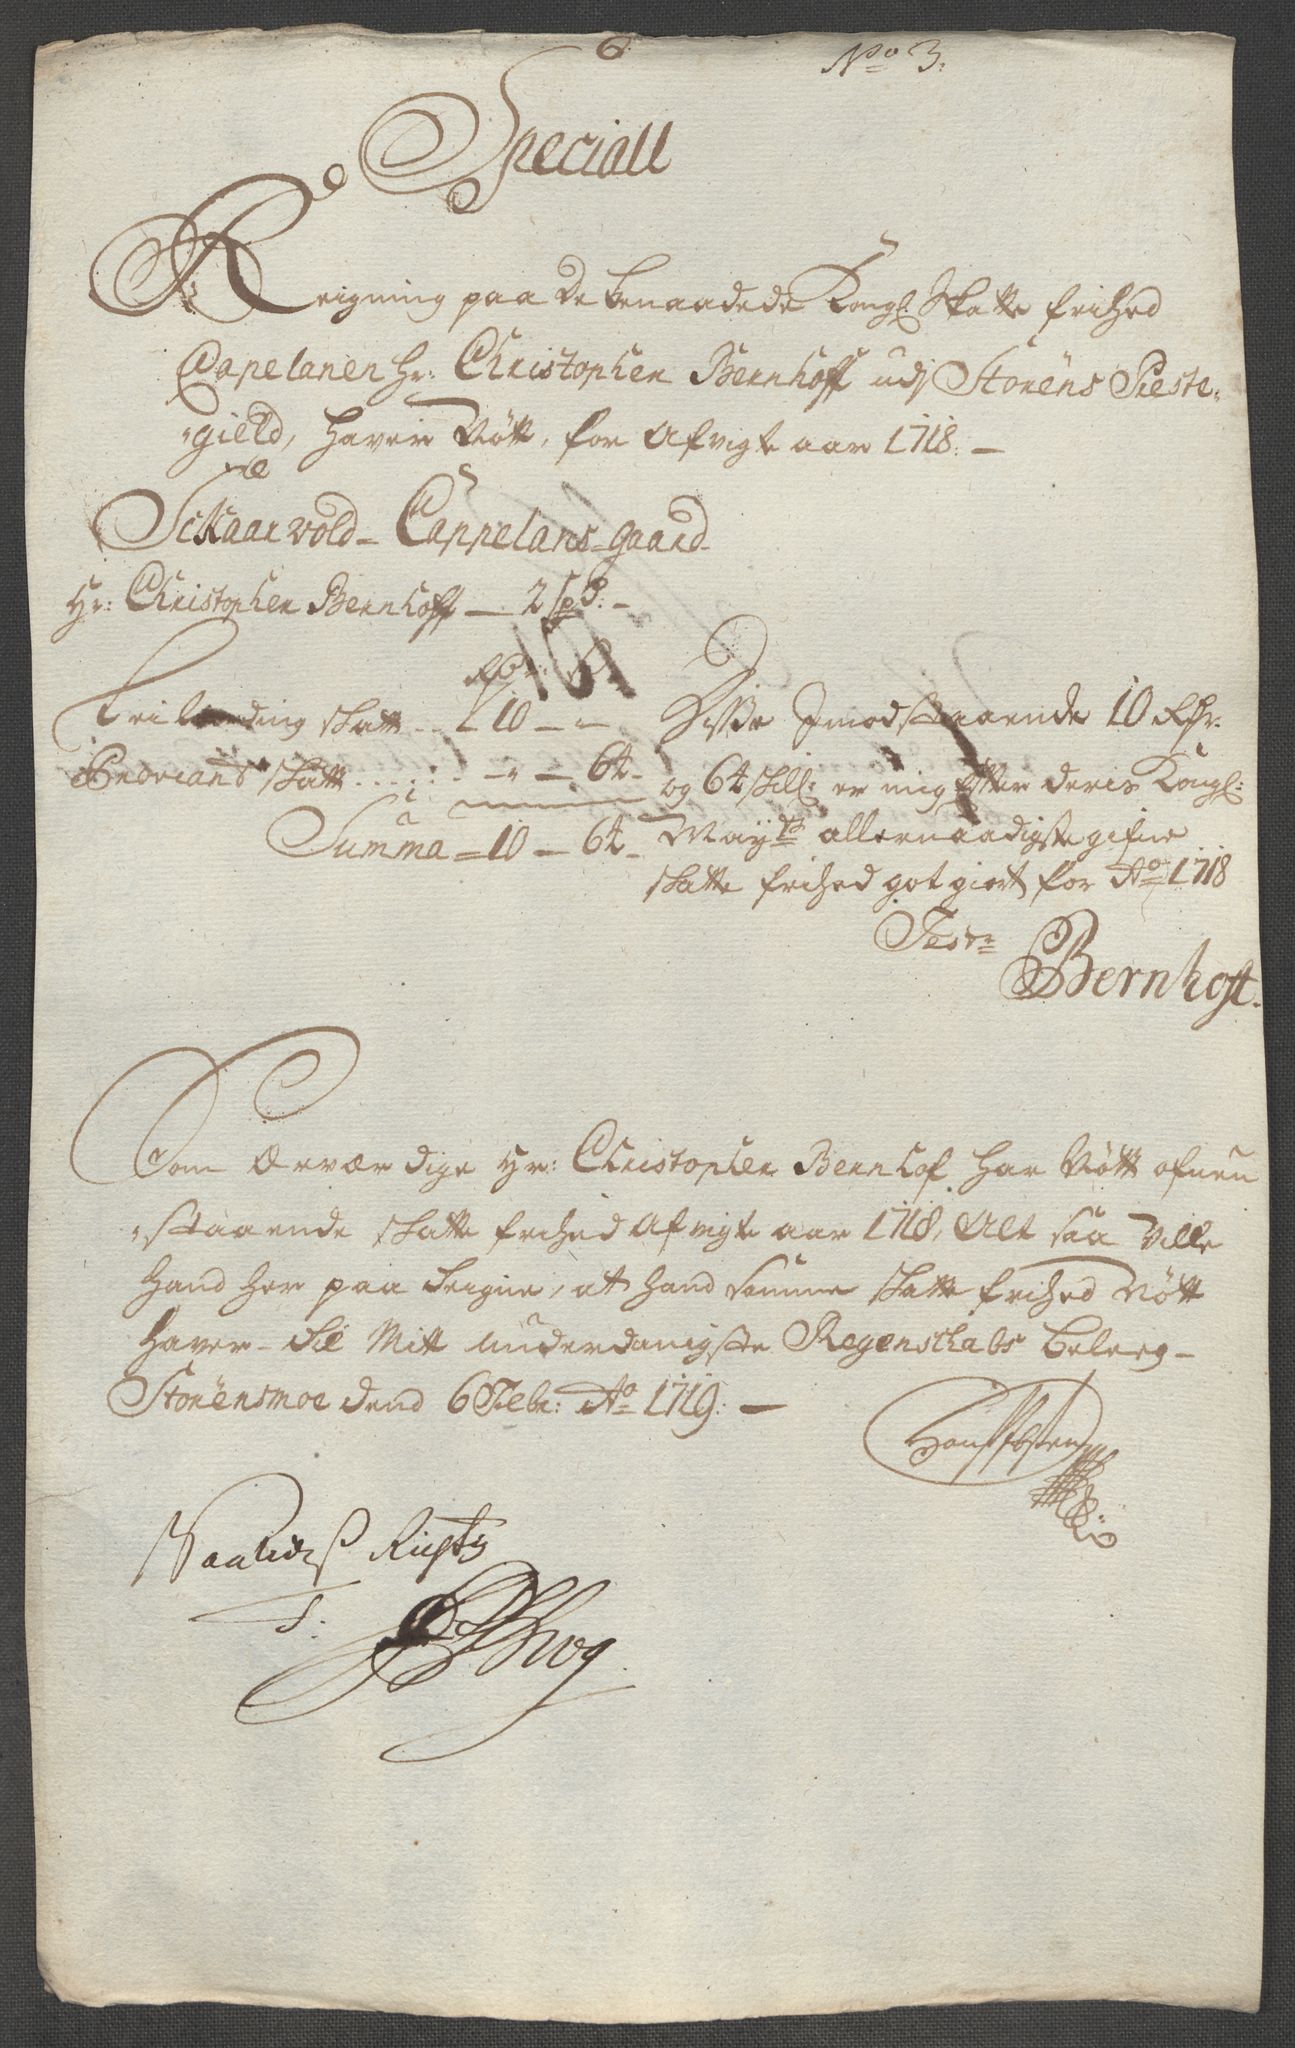 No 3.
Speciall
Reigning paa de benaadede Kongl. Skatte frihed
Capelanen Hr: Christopher Bernhoff udj Störens Preste-
gield, haver Nött, for afvigte aar 1718.
Schaarvold Cappelans gaard
Hr: Christopher Bernhoff 2 sp
Rdr: s
skatt 10
Proviand skatt 64
Summa 10 64
Disse Imodstaaende 10 Rdr.
og 64 skill. er mig efter deris Kongl:
Mayts allernaadigste gifne
skatte frihed got giort for Ao 1718
Test
Bernhoft.
Som ærværdige Hr: Christopher Bernhof har Nött ofven
staaende skatte frihed afvigte aar 1718, Alt saa ville
hand her paa teigne, at hand samme skatte frihed Nött
haver til Mitt underdanigste Regenskabs beleeg
Störensmoe dend 6 Febr: Ao 1719.